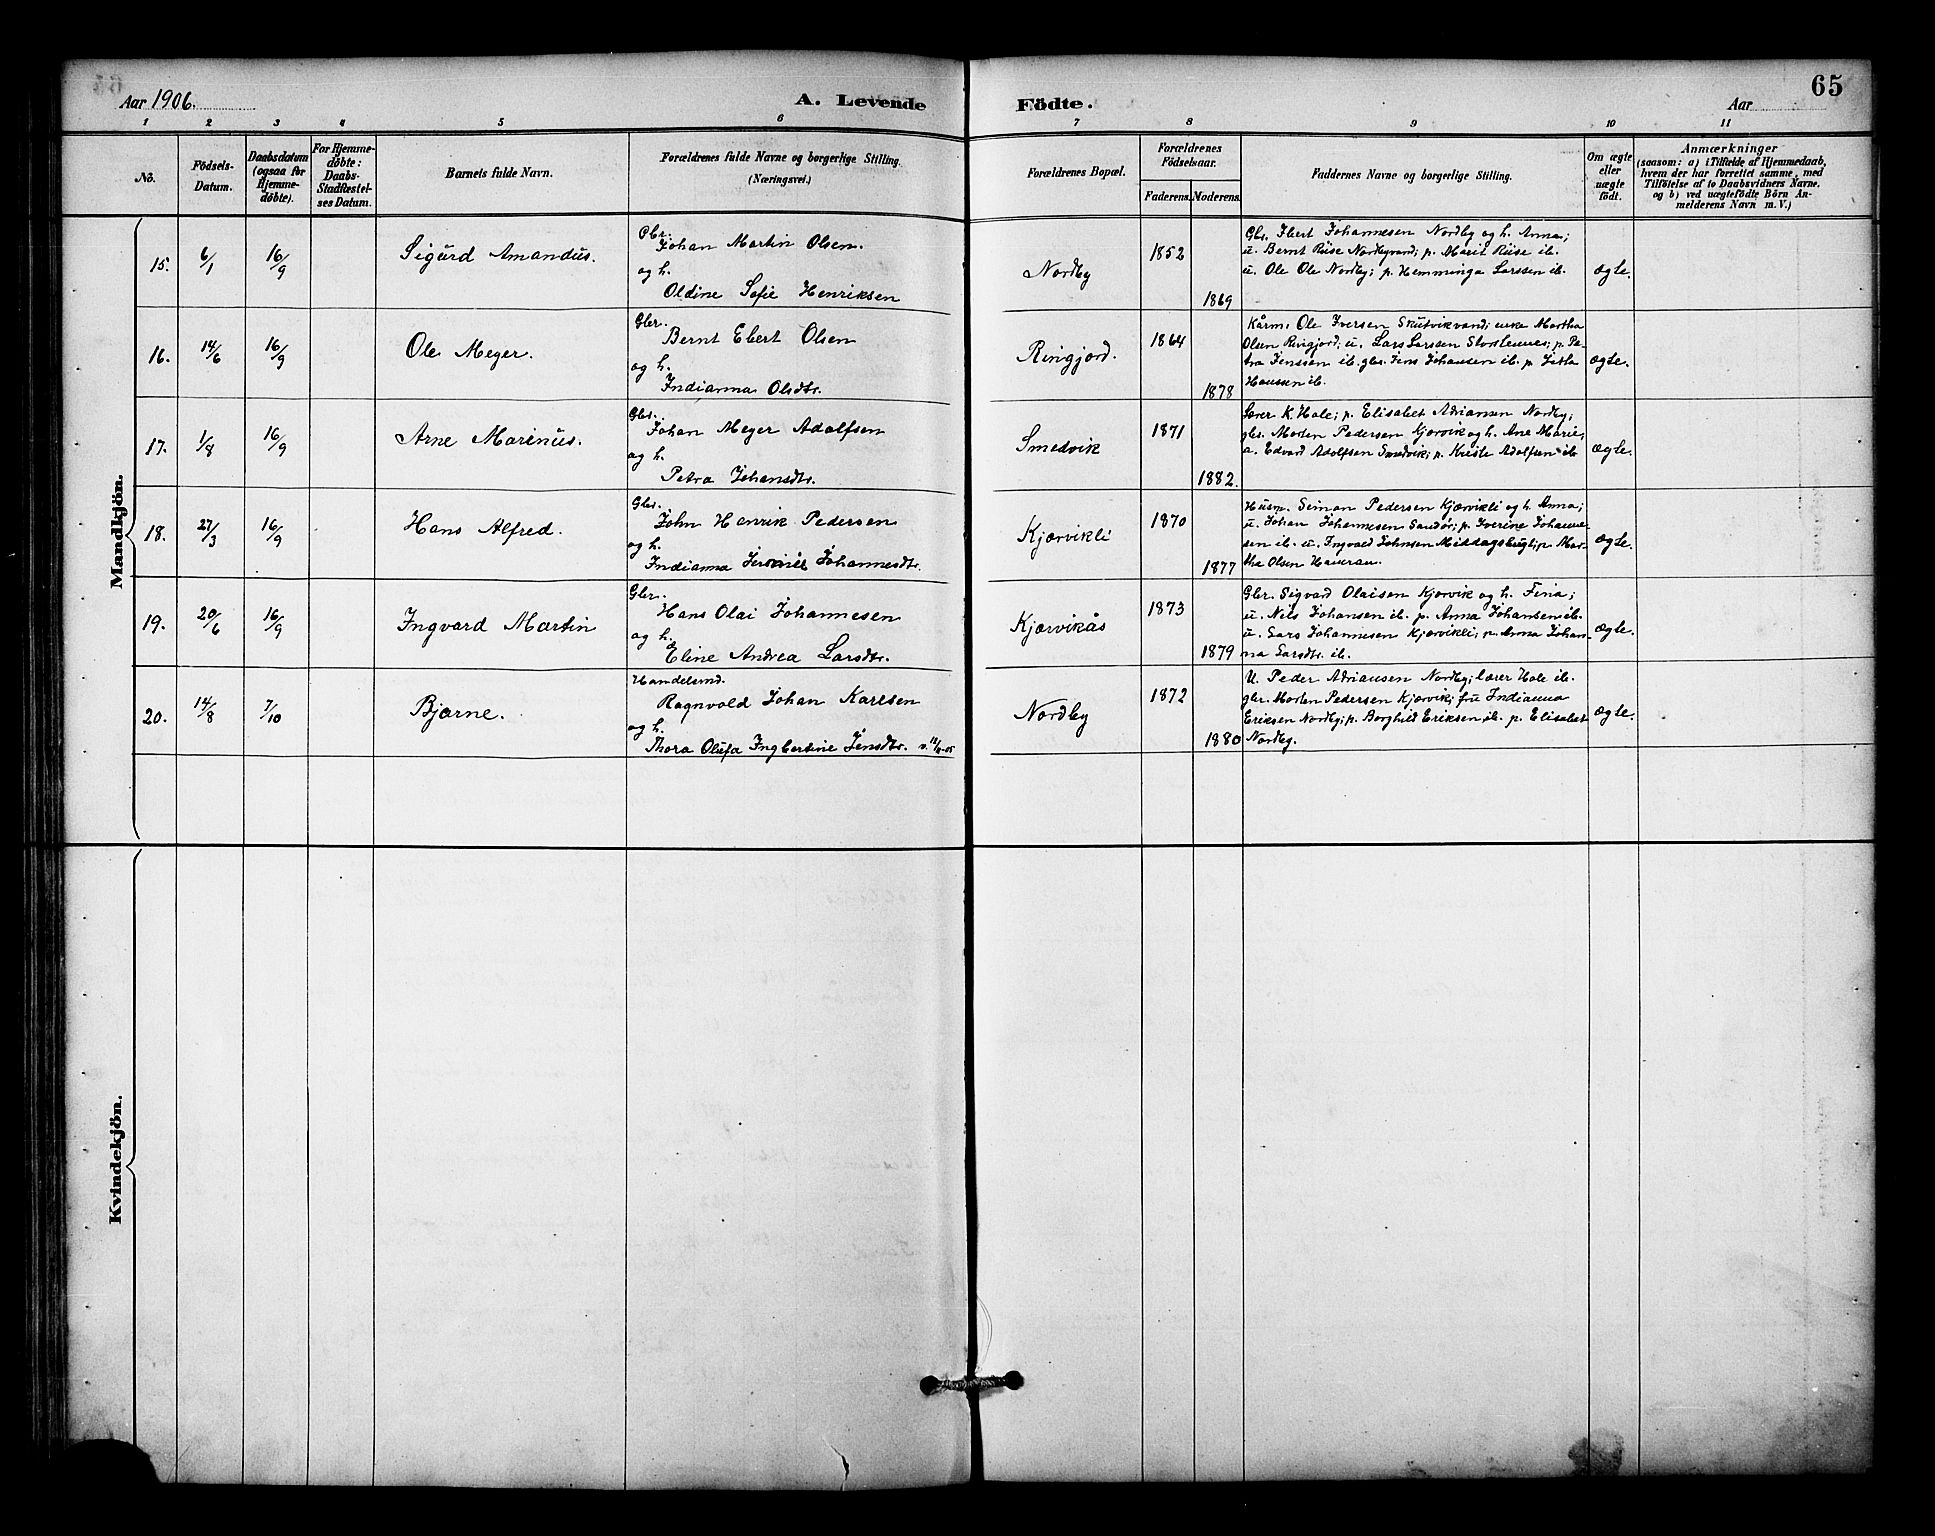 Aar 1906. A. Levende Födte. Aar 65
1 2 3 4 5 6 7 8 9 10 11
No.
Födsels-
Datum.
Daabsdatum
(ogsaa for
Hjemme-
döbte).
For Hjemme-
döbte:
Daabs-
Stadfæstel-
ses Datum.
Barnets fulde Navn.
Forældrenes fulde Navne og borgerlige Stilling.
(Næringsvei.)
Forældrenes Bopæl.
Forældrenes
Födselsaar.
Faderens. Moderens.
Faddernes Navne og borgerlige Stilling.
Om ægte
eller
uægte
födt.
Anmærkninger
(saasom: a) i Tilfælde af Hjemmedaab,
hvem der har forrettet samme, med
Tilföielse af to Daabsvidners Navne,
og b) ved uægtefödte Börn An-
melderens Navn m. V.)
Mandkjön.
15. 6/1 16/9 Sigurd Amandus.
Gbr.
Johan Martin Olsen.
og h.
Oldine Sofie Henriksen
Nordby 1852 1869
Gbr. Ebert Johannesen Nordby og h. Anna;
u. Bernt Riise Nordbyvand; p. Marit Riise ib.
u. Ole Ole Nordby; p. Hemminga Larssen ib.
ægte.
16. 14/6 16/9 Ole Meyer.
Gbr.
Bernt Ebert Olsen
og h.
Indianna Olsdtr.
Ringjord. 1864 1878
Kårm. Ole Iversen Skutvikvand; enke Martha
Olsen Ringjord; u. Lars Larssen Storstennes; p. Pe-
tra Jenssen ib. gbr. Jens Johansen ib. p. Jetta
Hanssen ib.
ægte.
17. 1/8 16/9 Arne Marinus.
Gbr.
Johan Meyer Adolfsen
og h.
Petra Johansdtr.
Smedvik 1871 1882.
Lærer K. Hole; p. Elisabet Adriansen Nordby;
gbr. Morten Pedersen Kjørvik og h. Ane Marie;
u. Edvard Adolfsen Smedvik; p. Kriste Adolfsen ib
ægte.
18. 27/3 16/9 Hans Alfred.
Gbr.
John Henrik Pedersen
og h.
Indianna Johannesdtr.
Kjærvikli 1870 1877
Husm. Simon Pedersen Kjærvikli og h. Anna;
u. Johan Johannesen Sandör; p. Iverine Johanne-
sen ib. u. Ingvald Johnsen Middagsbugt; p. Mar-
tha Olsen Haveran.
ægte.
19. 20/6 16/9 Ingvard Martin
Gbr.
Hans Olai Johannesen
og h.
Eline Andrea Larsdtr.
Kjærvikås 1873 1879
Gbr. Sigvard Olaisen Kjørvik og h. Fina;
u. Nils Johansen ib. p. Anna Johansen ib.
u. Lars Johannesen Kjærvikli; p. Anna Johan-
na Larsdtr. ib.
ægte.
20. 14/8 7/10 Bjarne.
Handelsmd.
Ragnvald Johan Karlsen
og h.
Thora Olufa Ingbertine Jensdtr.
Nordby 1872 1880
U. Peder Adriansen Nordby; lærer Hole ib.
gbr. Morten Pedersen Kjørvik; frü Indianna
Eriksen Nordby; p. Borghild Eriksen ib. p. Elisabet
Nordby.
ægte.
Kvindekjön.